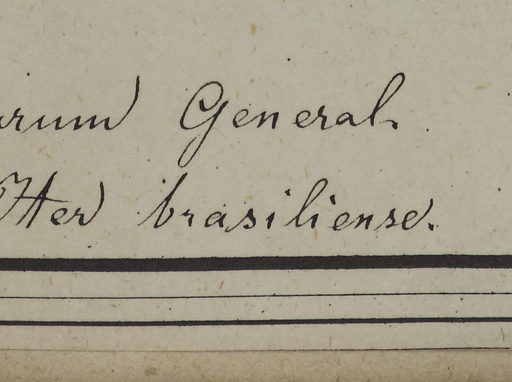 General.
Iter brasiliense.